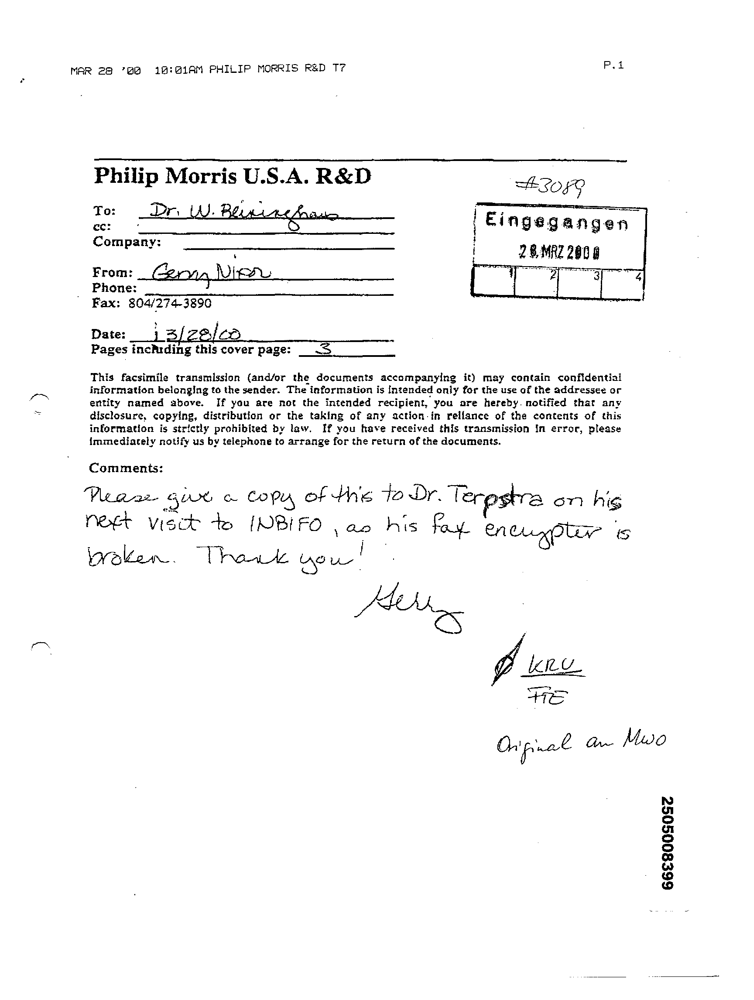 MAR 28 '00 10:01AM PHILIP MORRIS R&D T7 P.1
Philip Morris U.S.A. R&D
#3089
To: Dr. W.
cc:
Company:
Eingegangen
28. MRZ 2000
1 2 3 4
From: Gerry Nixon
Phone:
Fax: 804/274-3890
Date: 3/28/00
Pages including this cover page: 3
This facsimile transmission (and/or the documents accompanying it) may contain confidential
information belonging to the sender. The information is intended only for the use of the addressee or
entity named above. If you are not the intended recipient, you are hereby notified that any
disclosure, copying, distribution or the taking of any action in reliance of the contents of this
information is strictly prohibited by law. If you have received this transmission in error, please
immediately notify us by telephone to arrange for the return of the documents.
Comments:
Please give a copy of this to Dr. Terpstra on his
next visit to INBIFO, as his fax encrypter is
broken. Thank you!
Gerry
KRU
FTE
Original an MWO
2505008399